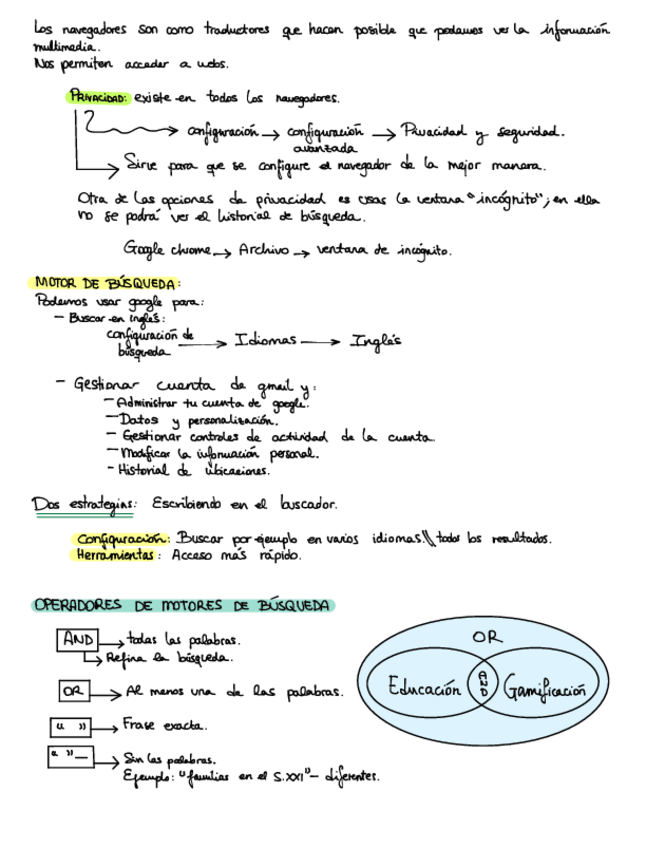 Los navegadores son como traductores que hacen posible que podamos ver la información
multimedia.
Nos permiten acceder a webs.
PRIVACIDAD: existe en todos los navegadores.
configuración → configuración avanzada → Privacidad y seguridad.
Sirve para que se configure el navegador de la mejor manera.
Otra de las opciones de privacidad es usar la ventana "incógnito"; en ella
no se podrá ver el historial de búsqueda.
Google chrome → Archivo → ventana de incógnito.
MOTOR DE BÚSQUEDA:
Podemos usar google para:
- Buscar en inglés:
configuración de búsqueda → Idiomas → Inglés
- Gestionar cuenta de gmail y:
- Administrar tu cuenta de google.
- Datos y personalización.
- Gestionar controles de actividad de la cuenta.
- Modificar la información personal.
- Historial de ubicaciones.
Dos estrategias: Escribiendo en el buscador.
Configuración: Buscar por ejemplo en varios idiomas \\ todos los resultados.
Herramientas: Acceso más rápido.
OPERADORES DE MOTORES DE BÚSQUEDA
AND → todas las palabras.
→ Refina la búsqueda.
OR → Al menos una de las palabras.
" " → Frase exacta.
" " - → Sin las palabras.
Ejemplo: "familias en el S.XXI" - diferentes.
OR
Educación AND Gamificación